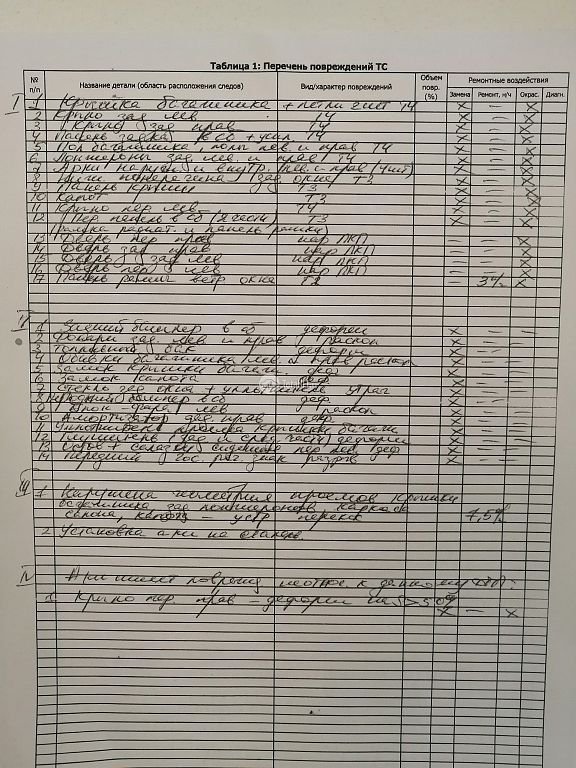 Таблица 1: Перечень повреждений ТС
№ п/п Название детали (область расположения следов) Вид/характер повреждений Объем повр. (%) Ремонтные воздействия
Замена Ремонт, н/ч Окрас. Диагн.
I 1 Крышка багажника + петли 2шт Т4 х — х
2 Крыло зад лев Т4 х — х
3 Крыло зад прав Т4 х — х
4 Панель задка в сб + усил Т4 х — х
5 Пол багажника, полы лев. и прав Т4 х — х
6 Лонжероны зад лев. и прав Т4 х — х
7 Арки наружн и внутр лев. и прав (4шт) х — х
8 зад окна Т3 х — х
9 Панель крыши Т3 х — х
10 Капот Т3 х — х
11 Крыло пер лев Т4 х — х
12 Пер. панель в сб (2 части) Т3 х — х
(рамка радиат. и панель
13 Дверь пер прав нар ЛКП — — х
14 Дверь зад прав нар ЛКП — — х
15 Дверь зад лев нар ЛКП — — х
16 Дверь пер лев нар ЛКП — — х
17 Панель ветр окна Т2 — 3 х
II 1 Задний бампер в сб деформ х — —
2 Фонари зад лев и прав раскол х — —
3 Топливный бак деформ х — —
4 Обивки багажника лев. и прав раскол х — —
5 Замок крышки багаж. деф х — —
6 Замок капота деф х — —
7 Стекло зад окна + уплотнитель утрач х — —
8 Передний бампер в сб деф х — —
9 Блок-фара лев раскол х — —
10 Амортизатор зад прав деф х — —
11 Уплотнитель проема крышки багажн х — —
12 Глушитель (зад и сред части) деформ х — —
13 сиденье пер лев деф х — —
14 Передний гос. рег. знак разрыв х — —
III 1 Нарушена геометрия проемов крышки
багажника зад лонжеронов каркаса
салона капота — устр перекос 7,5
2 Установка а/м на стапель
IV А/м имеет поврежд неотнос. к данному ДТП:
1 Крыло пер. прав — деформ на S>50%
х — х